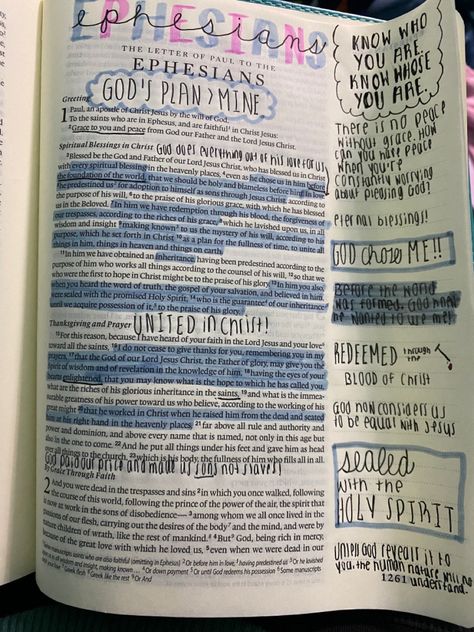 EPHESIANS
ephesians
THE LETTER OF PAUL TO THE
EPHESIANS
GOD'S PLAN > MINE
Greeting
1 Paul, an apostle of Christ Jesus by the will of God,
To the saints who are in Ephesus, and are faithful in Christ Jesus:
2 Grace to you and peace from God our Father and the Lord Jesus Christ.
Spiritual Blessings in Christ God does everything out of his love for us
3 Blessed be the God and Father of our Lord Jesus Christ, who has blessed us in Christ
with every spiritual blessing in the heavenly places, 4 even as he chose us in him before
the foundation of the world, that we should be holy and blameless before him. In love
5 he predestined us for adoption to himself as sons through Jesus Christ, according to
the purpose of his will, 6 to the praise of his glorious grace, with which he has blessed
us in the Beloved. 7 In him we have redemption through his blood, the forgiveness of
our trespasses, according to the riches of his grace, 8 which he lavished upon us, in all
wisdom and insight 9 making known to us the mystery of his will, according to his
purpose, which he set forth in Christ 10 as a plan for the fullness of time, to unite all
things in him, things in heaven and things on earth.
11 In him we have obtained an inheritance, having been predestined according to the
purpose of him who works all things according to the counsel of his will, 12 so that we
who were the first to hope in Christ might be to the praise of his glory. 13 In him you also,
when you heard the word of truth, the gospel of your salvation, and believed in him,
were sealed with the promised Holy Spirit, 14 who is the guarantee of our inheritance
until we acquire possession of it, to the praise of his glory.
Thanksgiving and Prayer UNITED in Christ!
15 For this reason, because I have heard of your faith in the Lord Jesus and your love
toward all the saints, 16 I do not cease to give thanks for you, remembering you in my
prayers, 17 that the God of our Lord Jesus Christ, the Father of glory, may give you the
Spirit of wisdom and of revelation in the knowledge of him, 18 having the eyes of your
hearts enlightened, that you may know what is the hope to which he has called you,
what are the riches of his glorious inheritance in the saints, 19 and what is the immea-
surable greatness of his power toward us who believe, according to the working of his
great might 20 that he worked in Christ when he raised him from the dead and seated
him at his right hand in the heavenly places, 21 far above all rule and authority and
power and dominion, and above every name that is named, not only in this age but
also in the one to come. 22 And he put all things under his feet and gave him as head
over all things to the church, 23 which is his body, the fullness of him who fills all in all.
God paid our price and made us sons not slaves!
By Grace Through Faith
2 And you were dead in the trespasses and sins 2 in which you once walked, following
the course of this world, following the prince of the power of the air, the spirit that
is now at work in the sons of disobedience— 3 among whom we all once lived in the
passions of our flesh, carrying out the desires of the body and the mind, and were by
nature children of wrath, like the rest of mankind. 4 But God, being rich in mercy,
because of the great love with which he loved us, 5 even when we were dead in our
KNOW WHO
YOU ARE.
KNOW WHOSE
YOU ARE.
There is no peace
without grace. How
can you have peace
when you're
constantly worrying
about pleasing God?
eternal blessings!
GOD chose ME!!
Before the world
was formed, God knew
he wanted to use me!
REDEEMED through the
BLOOD OF Christ
God now considers us
to be equal with Jesus
sealed
with the
HOLY SPIRIT
until God reveals it to
you, the human nature will no
understand.
1261